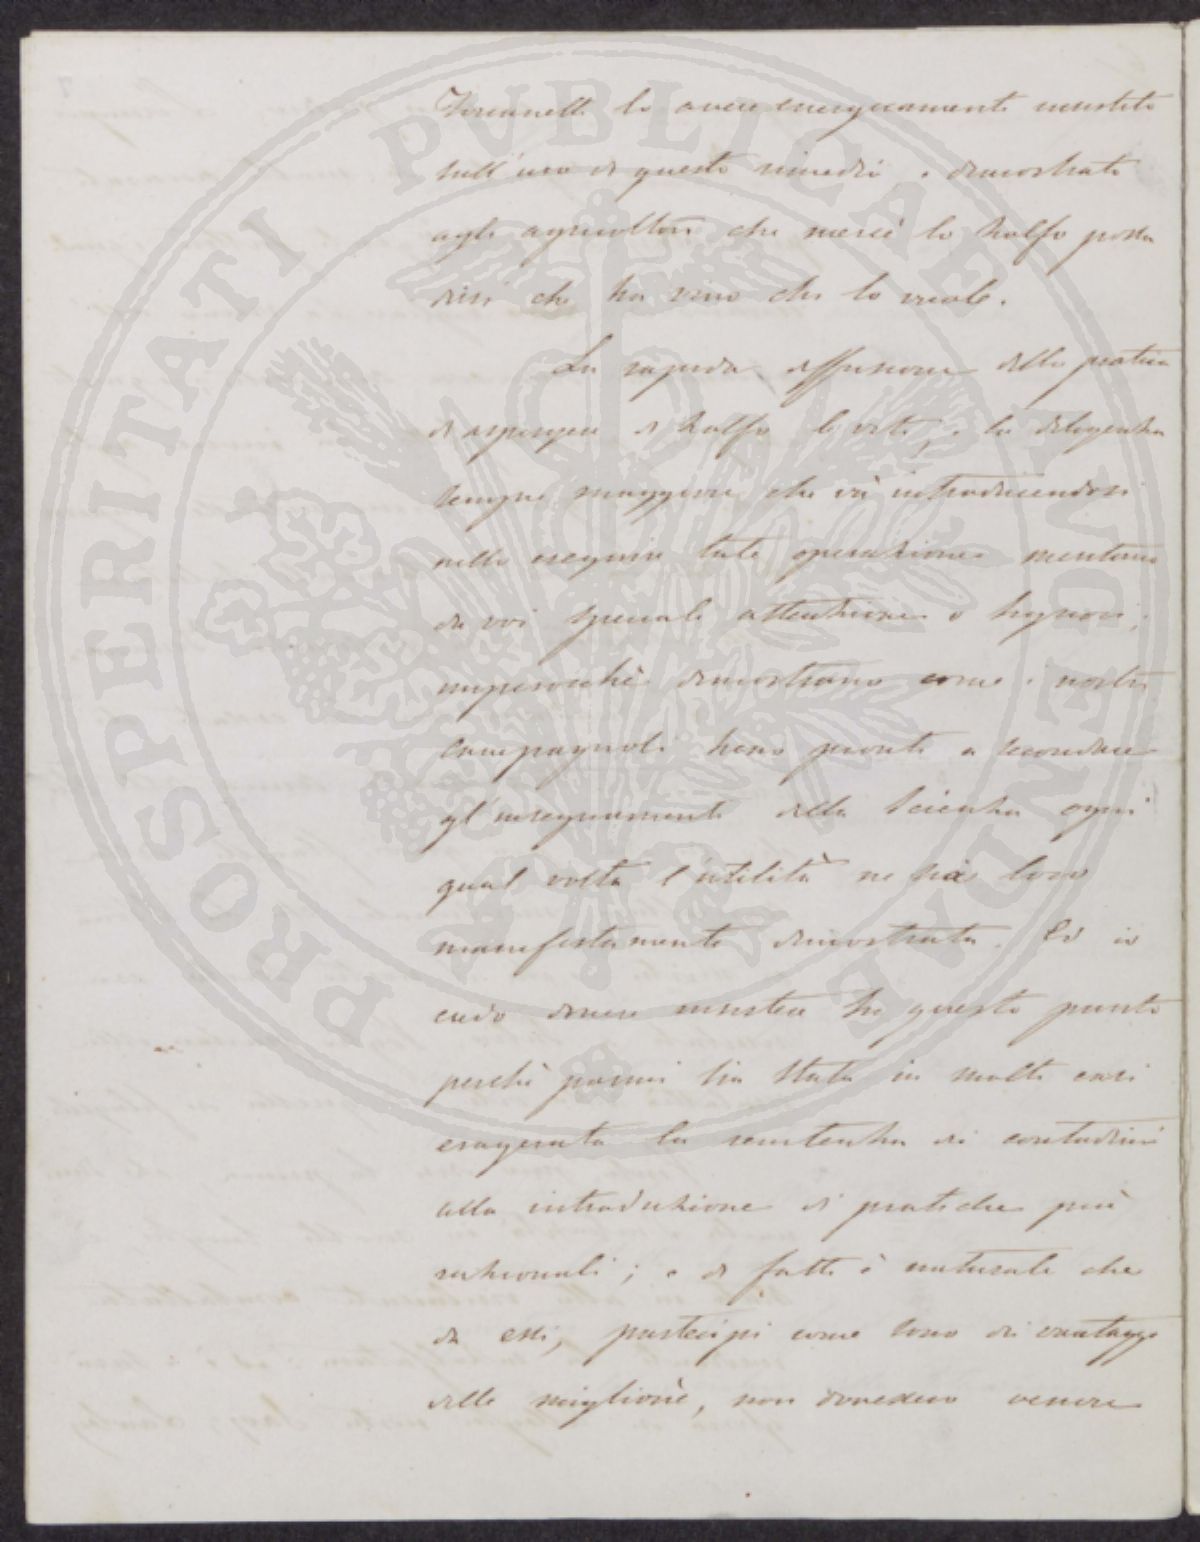 lo avere energicamente insistito
sull'uso di questo rimedio e dimostrato
agli agricoltori che mercè lo solfo possa
dirsi che ha vino chi lo vuole.
La rapida diffusione della pratica
di aspergere di solfo le viti, e la diligenza
sempre maggiore che và introducendosi
nello eseguire tale operazione meritano
da voi speciale attenzione o Signori;
imperocchè dimostrano come i nostri
campagnoli siano pronti a secondare
gl'insegnamenti della Scienza ogni
qual volta l'utilità ne sia loro
manifestamente dimostrata. Ed io
credo dovere insistere su questo punto
perchè parmi sia stata in molti casi
esagerata la resistenza dei contadini
alla introduzione di pratiche più
razionali; e di fatti è naturale che
da essi, partecipi come sono dei vantaggi
delle migliorie, non dovessero venire
PROSPERITATI PUBLICAE AUGENDAE